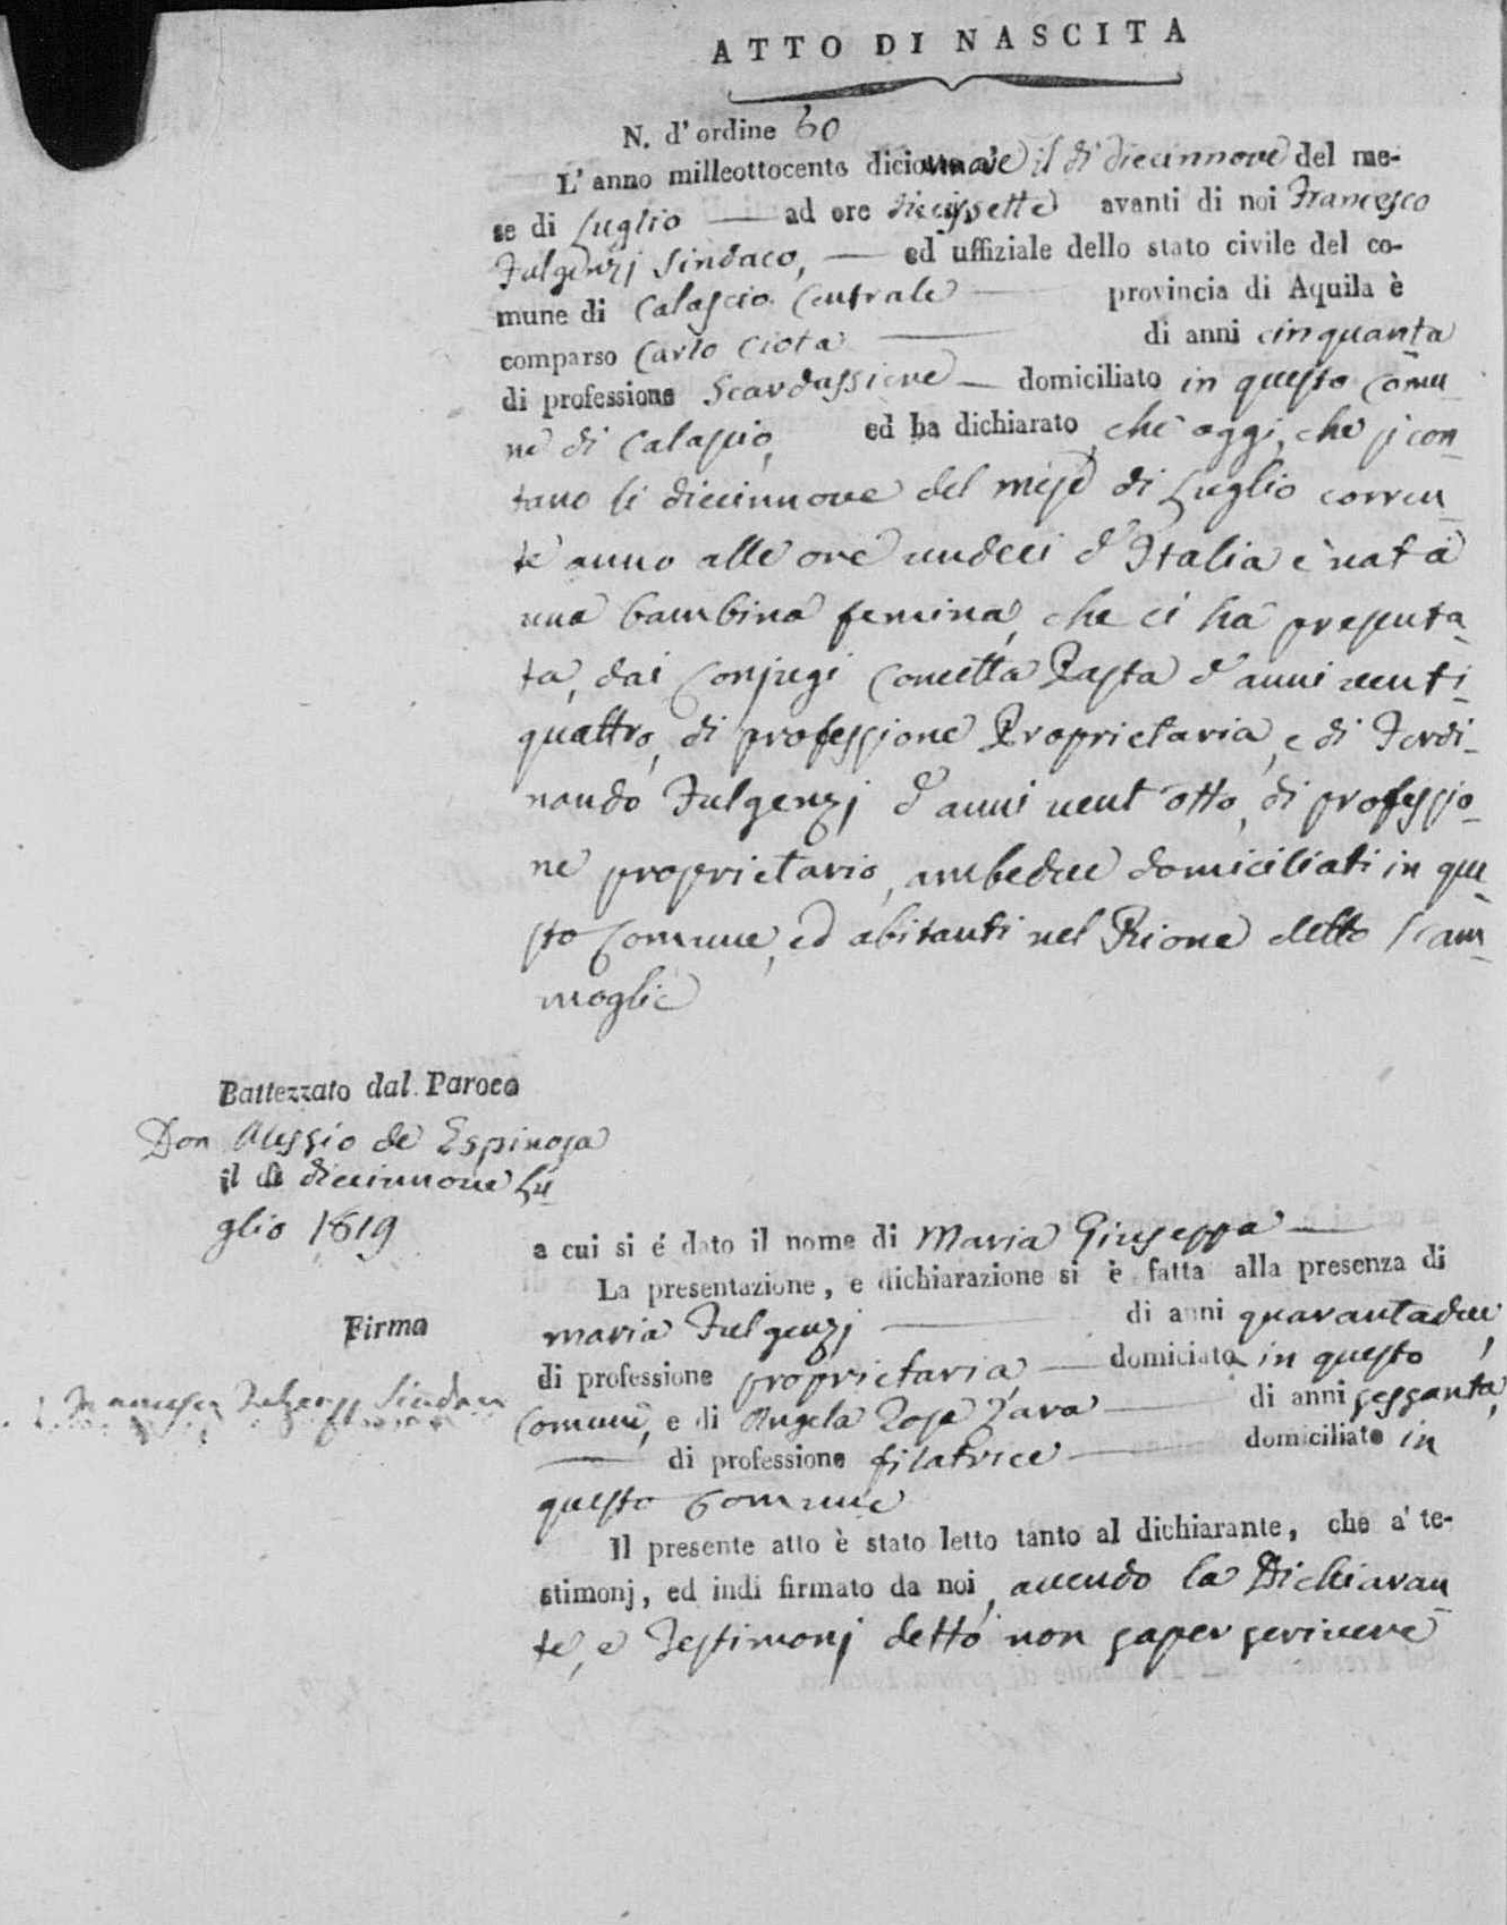 ATTO DI NASCITA
N. d'ordine 60
L'anno milleottocento diciannove il dì diecinnove del me-
se di Luglio — ad ore diecissette avanti di noi Francesco
Fulgenzj Sindaco, — ed uffiziale dello stato civile del co-
mune di Calascio Centrale — provincia di Aquila è
comparso Carlo Ciota — di anni cinquanta
di professione Scardassiere — domiciliato in questo Comu
ne di Calascio, ed ha dichiarato, che oggi, che si con
tano li diecinnove del mese di Luglio corren
te anno alle ore undeci d'Italia è nata
una bambina femina, che ci ha presenta
ta, dai Conjugi Concetta Rasta d'anni venti
quattro, di professione Proprietaria, e di Ferdi
nando Fulgenzj d'anni vent'otto, di professio
ne proprietario, ambedue domiciliati in que
sto Comune, ed abitanti nel Rione detto
moglie
Battezzato dal Paroco
Don Alessio de Espinosa
il dì diecinnove Lu
glio 1819
a cui si é dato il nome di Maria Giuseppa —
La presentazione, e dichiarazione si è fatta alla presenza di
Firma
Maria Fulgenzj — di anni quarantadue,
di professione proprietaria, — domiciata in questo
Francesco Fulgenzj Sindaco
Comune, e di Angela Rosa Zara — di anni sessanta,
— di professione filatrice — domiciliato in
questo Comune
Il presente atto è stato letto tanto al dichiarante, che a' te-
stimonj, ed indi firmato da noi, avendo la Dichiaran
te, e Testimonj detto non saper scrivere